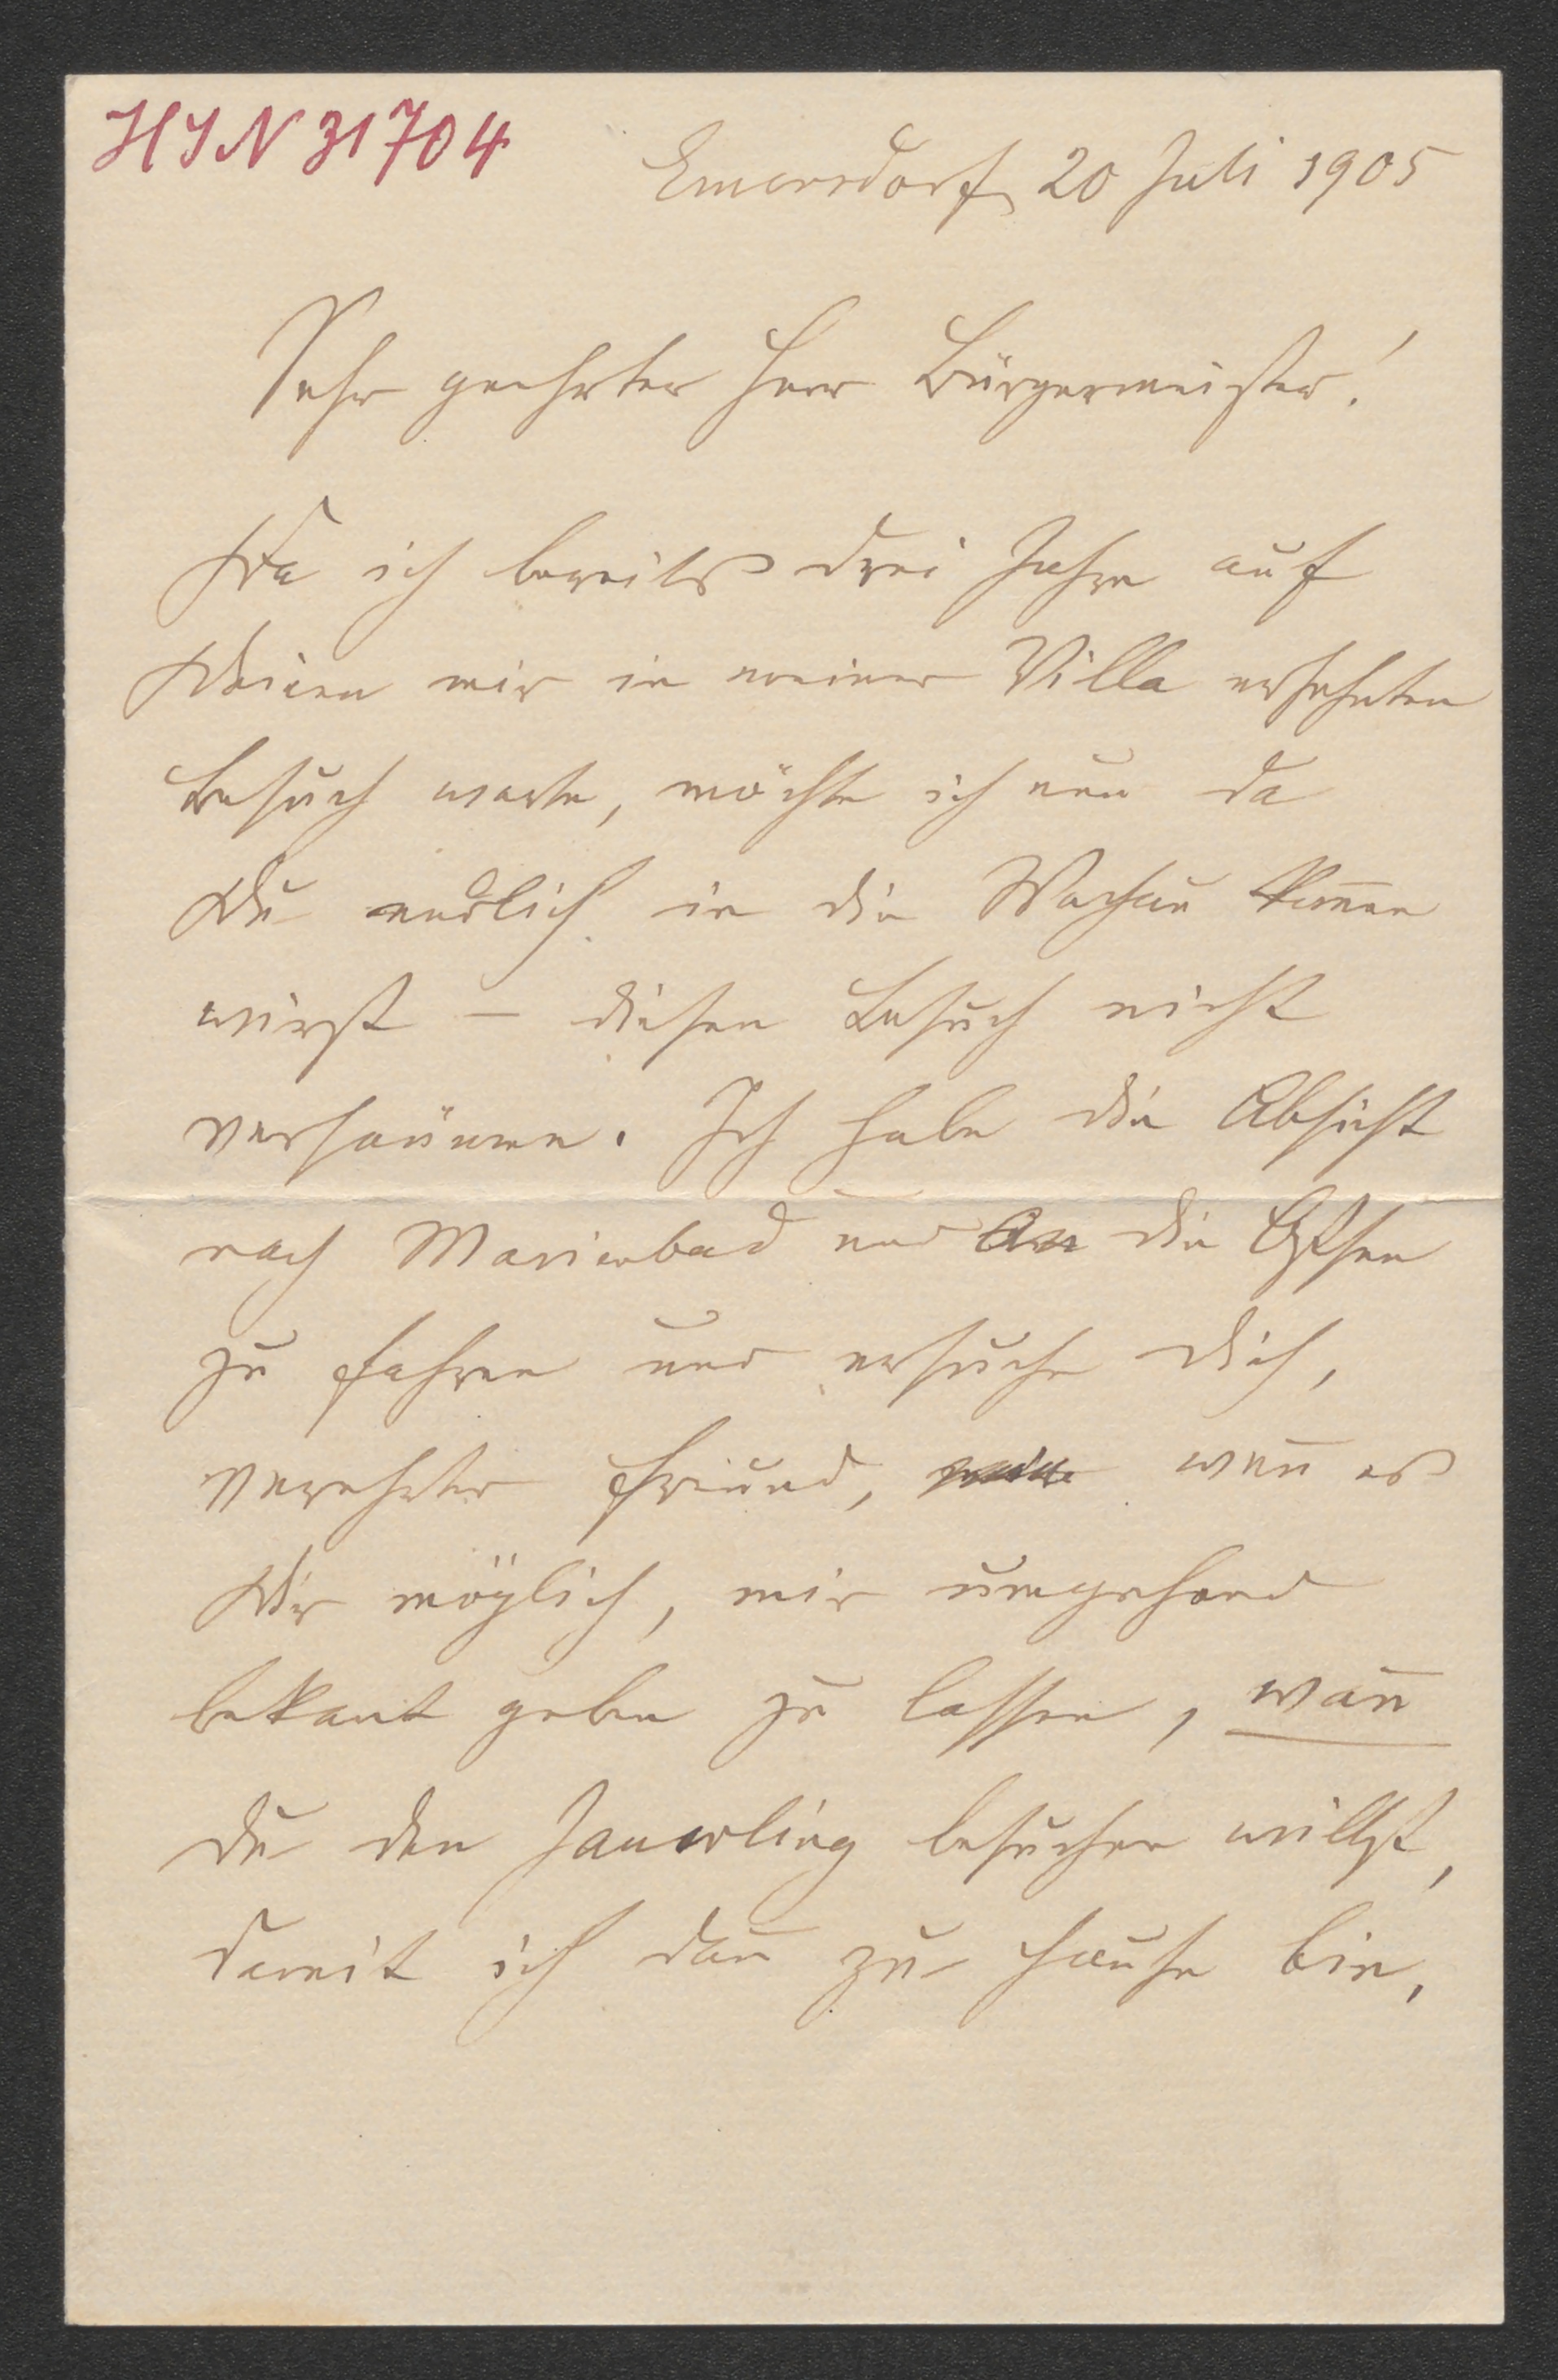 HIN 31704
Emersdorf, 20 Juli 1905
Sehr geehrter Herr Bürgermeister!
Da ich bereits drei Jahre auf
Deinen mir in meiner Villa ersehnten
Besuch warte, möchte ich nun da
Du endlich in die Wachau kom̅en
wirst – diesen Besuch nicht
versäumen. Ich habe die Absicht
nach Marienbad und an die Ostsee
zu fahren und ersuche Dich,
verehrter Freund, wen̅ es
Dir möglich, mir umgehend
bekan̅t geben zu lassen, wan̅
Du den Jauerling besuchen willst,
damit ich dan̅ zu Hause bin.